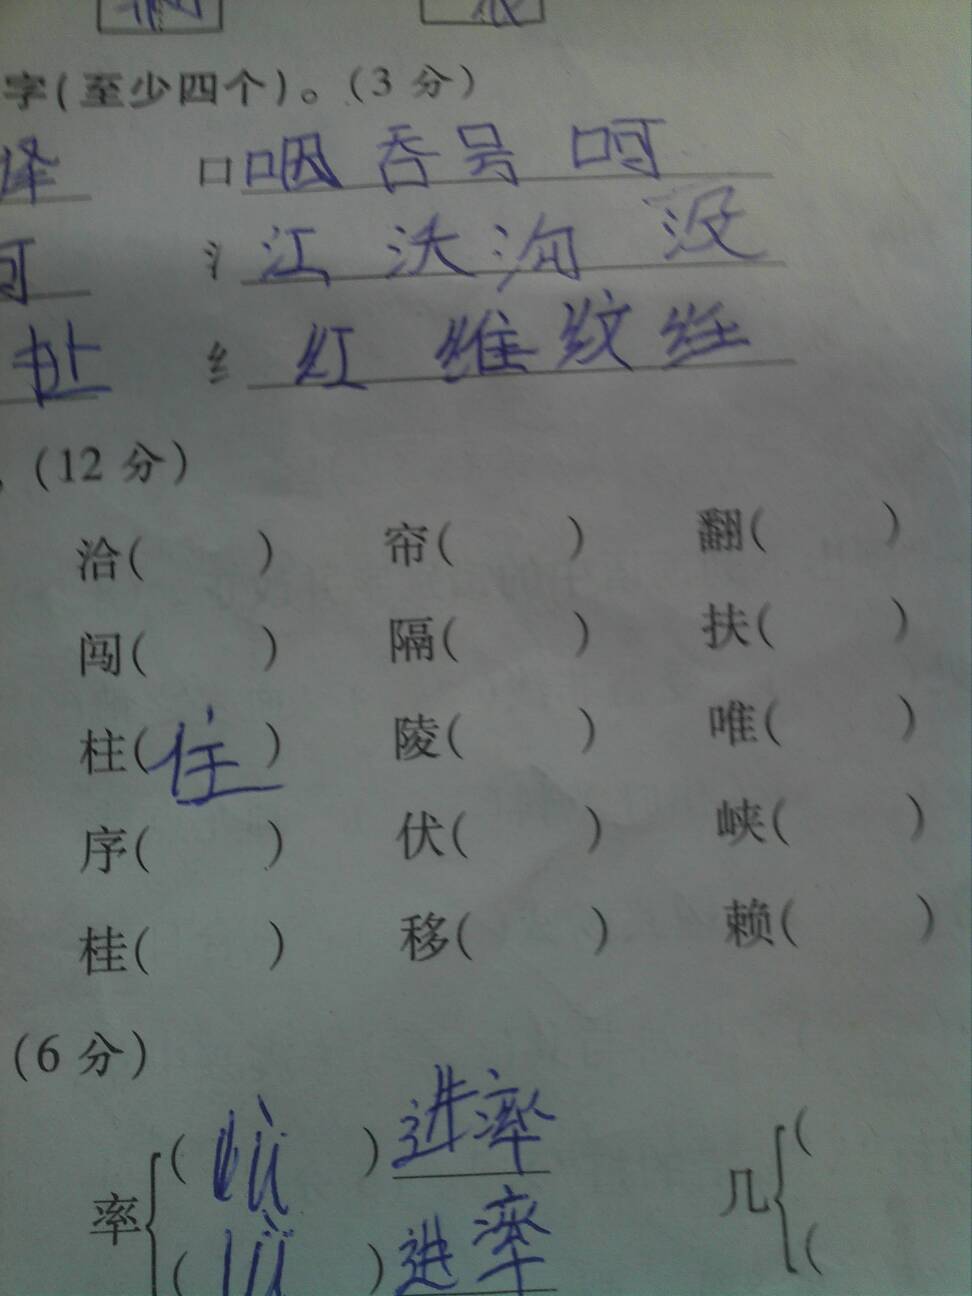 字(至少四个)。(3分)
口 咽 吞 号 呵
氵 江 沃 沟 没
址 纟 红 维 纹 经
(12分)
洽( ) 帘( ) 翻( )
闯( ) 隔( ) 扶( )
柱(住) 陵( ) 唯( )
序( ) 伏( ) 峡( )
桂( ) 移( ) 赖( )
(6分)
率 ( lǜ ) 进率 几 (
( lǜ ) 进率 (